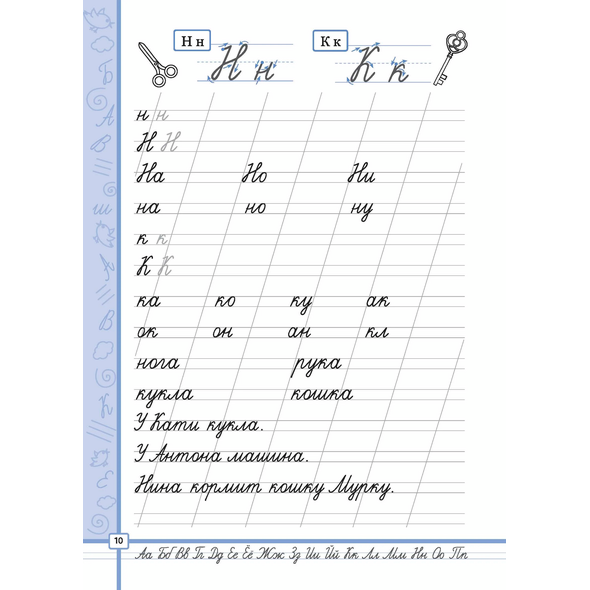 Н н К к
Н н К к
н н
Н Н
На Но Ни
на но ну
к к
К К
ка ко ку ак
ок он ан кл
нога рука
кукла кошка
У Кати кукла.
У Антона машина.
Нина кормит кошку Мурку.
10
Аа Бб Вв Гг Дд Ее Ёё Жж Зз Ии Йй Кк Лл Мм Нн Оо Пп